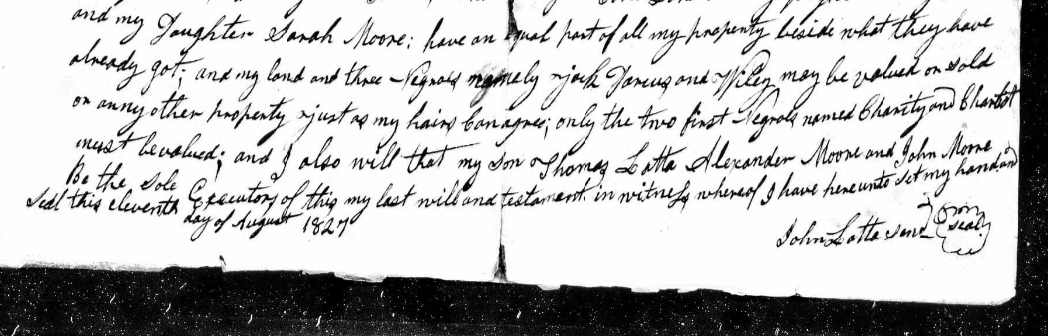 and my Daughter Sarah Moore; have an equal part of all my property beside what they have
already got; and my land and three Negroes namely Jack Darcus and Wiley may be valued or sold
or anny other property just as my hairs Can agree; only the two first Negroes named Charity and
must be valued; and I also will that my son Thomas Latta Alexander Moore and John Moore
Be the Sole Executors of this my last will and testament. in witness whereof I have hereunto set my hand and
Seal this eleventh day of August 1827
John Latta Senr
seal